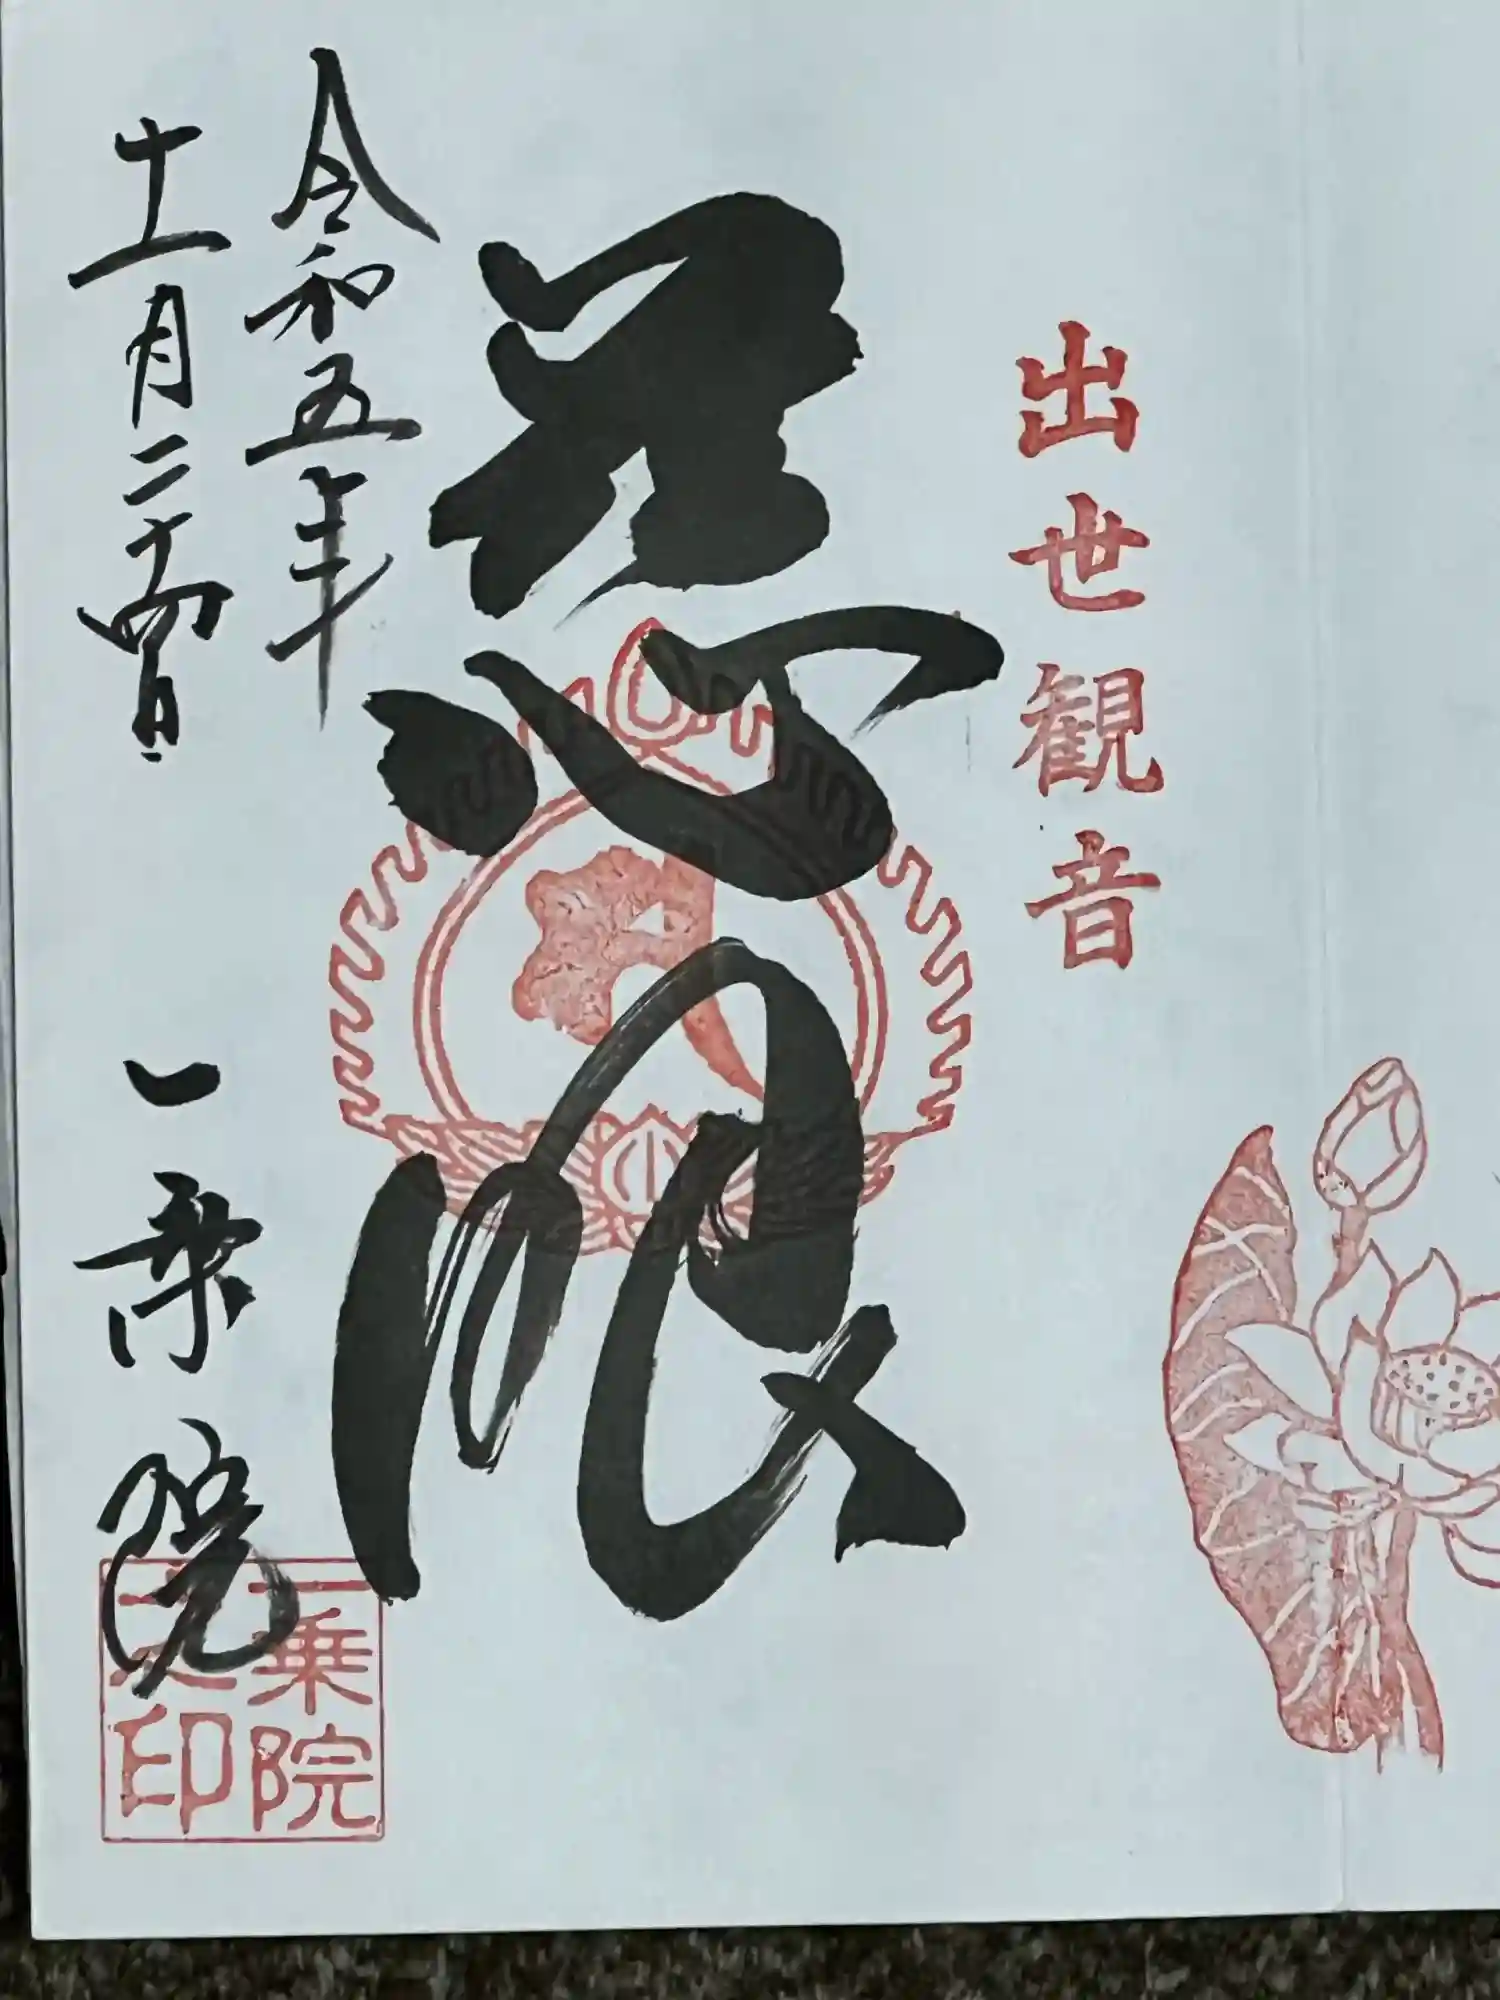 出世観音
慈眼
令和五年
十一月二十四日
一乗院
一乗院
之印